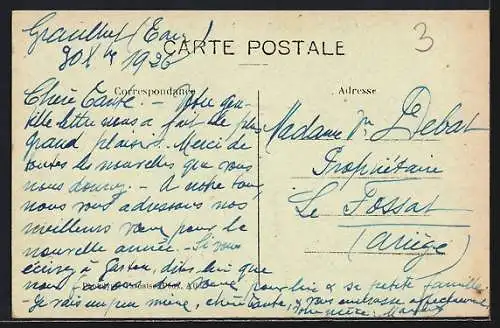 (Eure)
30 Xbre 1926
CARTE POSTALE
3
Correspondance
Adresse
Chère Tante. - Votre gen-
tille lettre nous a fait le plus
grand plaisir. Merci de
toutes les nouvelles que vous
nous donnez. - A notre tour,
nous vous adressons nos
meilleurs vœux pour la
nouvelle année. - Si vous
écrivez à Gaston, dites lui que
nous pour lui & sa petite famille
- Je vais un peu mieux, chère tante, & vous embrasse affectueusement
Madame Vve Debat
Propriétaire
Le Fossat
(Ariège)